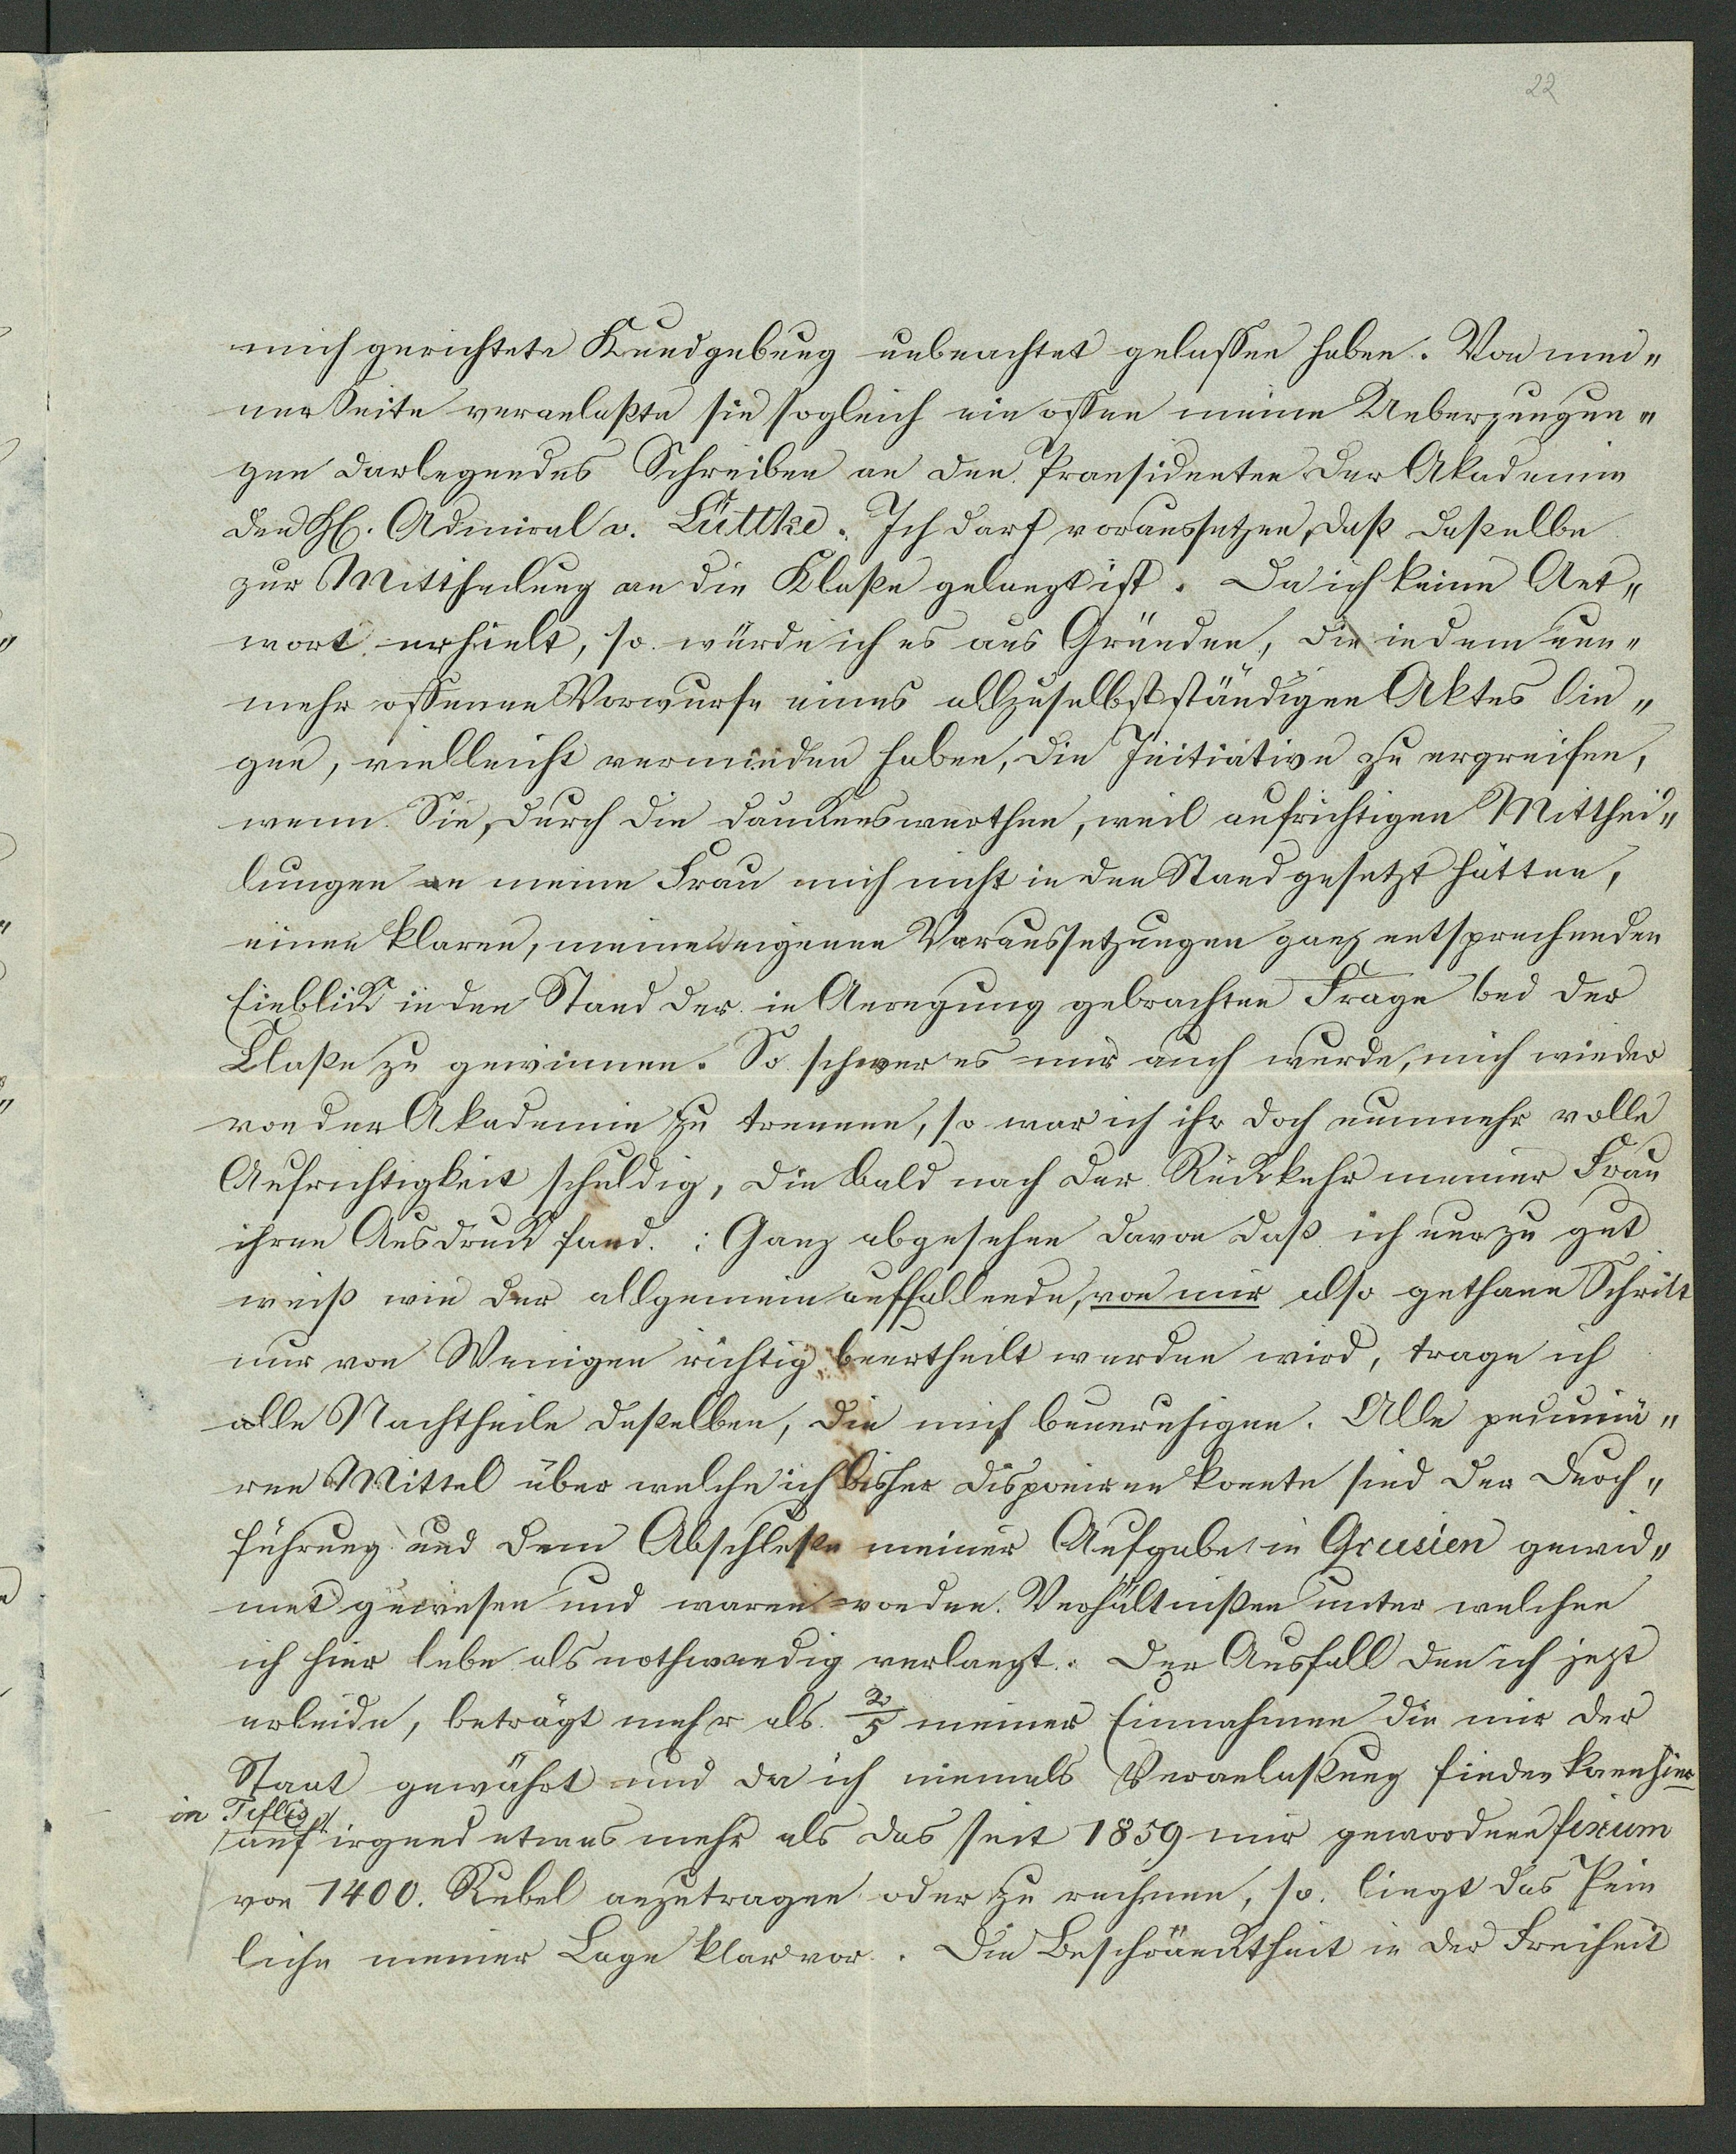 22
mich gerichtete Kundgebung unbeachtet gelaßen haben. Von mei„
ner Seite veranlaßte sie sogleich ein offen meine Ueberzeugun„
gen darlegendes Schreiben an den Praesidenten der Akademie
den H. Admiral v. Lüttke. Ich darf voraussetzen, daß daßelbe
zur Mittheilung an die Klaße gelangt ist. Da ich keine Ant„
wort erhielt, so würde ich es aus Gründen, die in dem nun„
mehr offenen Vorwurfe eines allzuselbstständigen Aktes lie„
gen, vielleicht vermieden haben, die Initiative zu ergreifen,
wenn Sie, durch die dankenswerthen, weil aufrichtigen Mitthei„
lungen an meine Frau mich nicht in den Stand gesetzt hätten,
einen klaren, meinen eigenen Voraussetzungen ganz entsprechenden
Einblick in den Stand der in Anregung gebrachten Frage bei der
Claße zu gewinnen. So schwer es mir auch wurde, mich wieder
von der Akademie zu trennen, so war ich ihr doch nunmehr volle
Aufrichtigkeit schuldig, die bald nach der Rückkehr meiner Frau
ihren Ausdruck fand. : Ganz abgesehen davon daß ich nur zu gut
weiß wie der allgemein auffallende, von mir also gethane Schritt
nur von Wenigen richtig beurtheilt werden wird, trage ich
alle Nachtheile deßelben, die mich beunruhigen. Alle pecuniä„
ren Mittel über welche ich bisher disponiren konnte sind der Durch„
führung und dem Abschluße meiner Aufgabe in Grusien gewid„
met gewesen und waren von den Verhältnißen unter welchen
ich hier lebe als nothwendig verlangt. Der Ausfall den ich jezt
erleide, beträgt mehr als 2/5 meiner Einnahmen die mir der
Staat gewährt und da ich niemals Veranlaßung finden kann hier
in Tiflis
auf irgend etwas mehr als das seit 1859 mir gewordene fixum
von 1400. Rubel anzutragen oder zu rechnen, so liegt das Pein
liche meiner Lage klar vor. Die Beschränktheit in der Freiheit